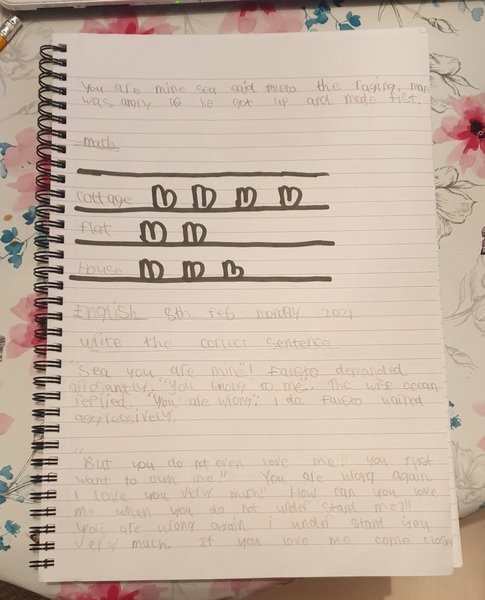 You are mine sea said the raging man
was angry as he got up and made fist.
math
cottage
flat
House
English 8th Feb monday 2021
write the correct sentence
"Sea you are mine"! Fausto demanded
arrogantly. "You belong to me". The wise ocean
replied. "You are wrong". I do. Fausto
aggressively.
"But you do not even love me!" you just
want to own me" You are wrong again.
I love you very much" How can you love
me when you do not under stand me?"
You are wrong again I under stand you
very much. If you love me come closer